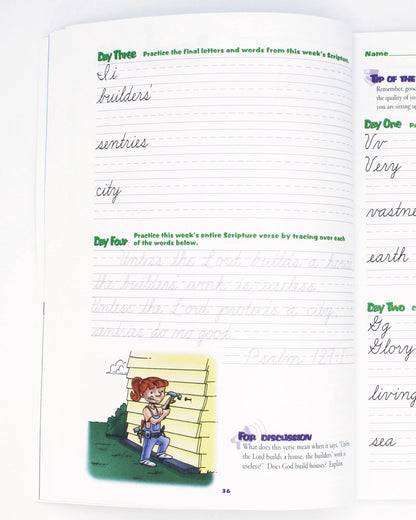 Day Three Practice the final letters and words from this week's Scripture.
Ii
builders'
sentries
city
Day Four Practice this week's entire Scripture verse by tracing over each
of the words below.
Unless the Lord builds a house,
the builders' work is useless.
Unless the Lord protects a city,
sentries do no good.
Psalm 127:1
For Discussion
What does this verse mean when it says, "Unless
the Lord builds a house, the builders' work is
useless?" Does God build houses? Explain.
36
Name
Tip of the
Remember, good
the quality of yo
you are sitting up
Day One
Vv
Very
vastne
earth
Day Two
Gg
Glory
living
sea